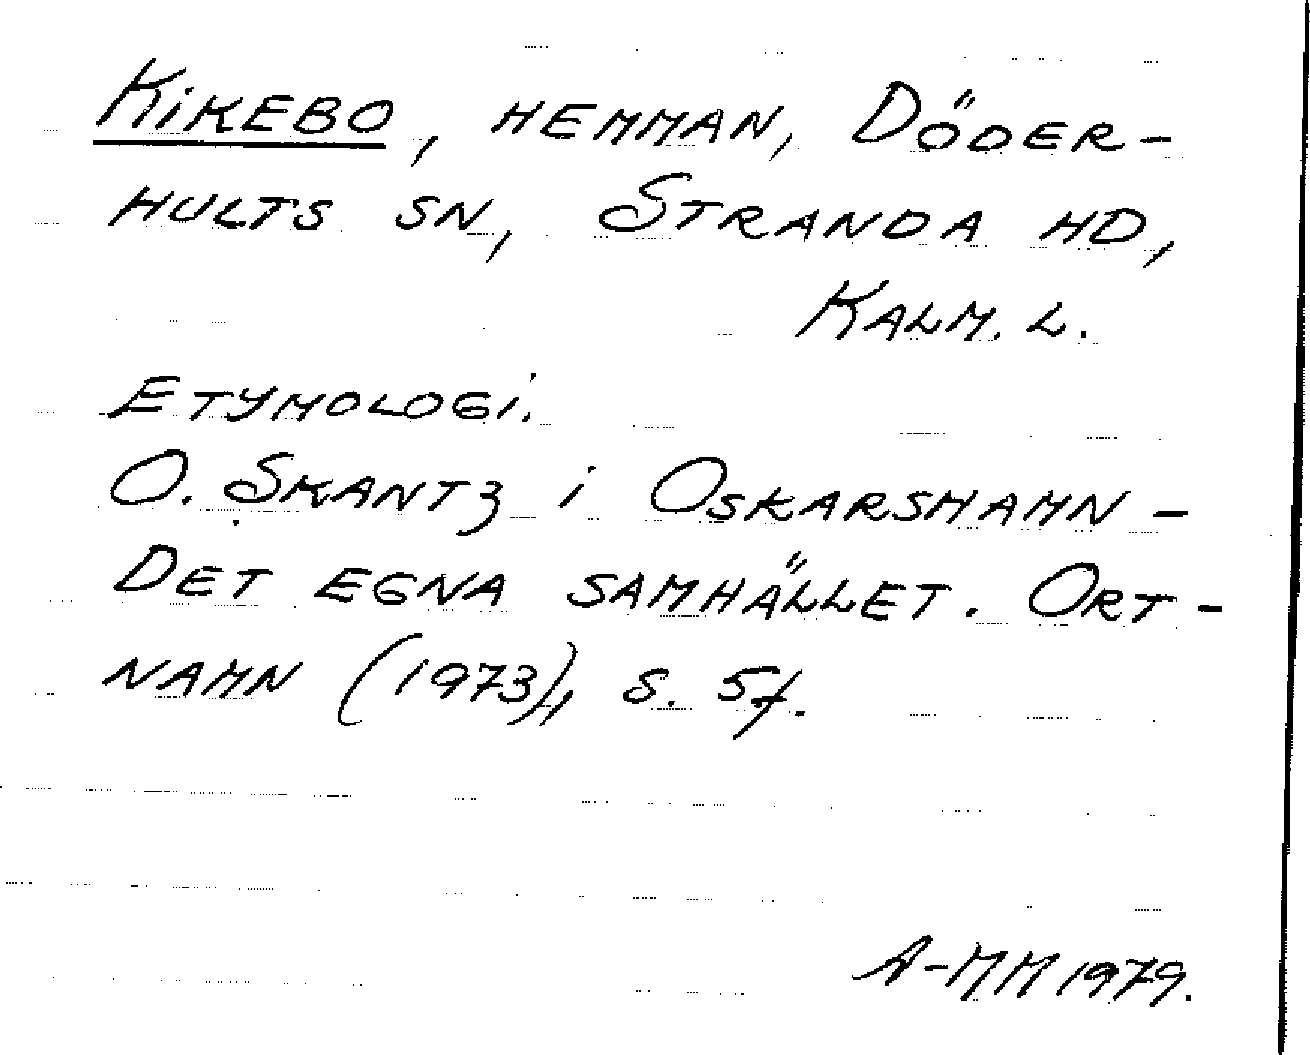 Kikebo, hemman, Döder-
hults sn, Stranda hd,
Kalm. l.
Etymologi.
O. Skantz i Oskarshamn -
Det egna samhället. Ort-
namn (1973), s. 5f.
A-MM 1979.